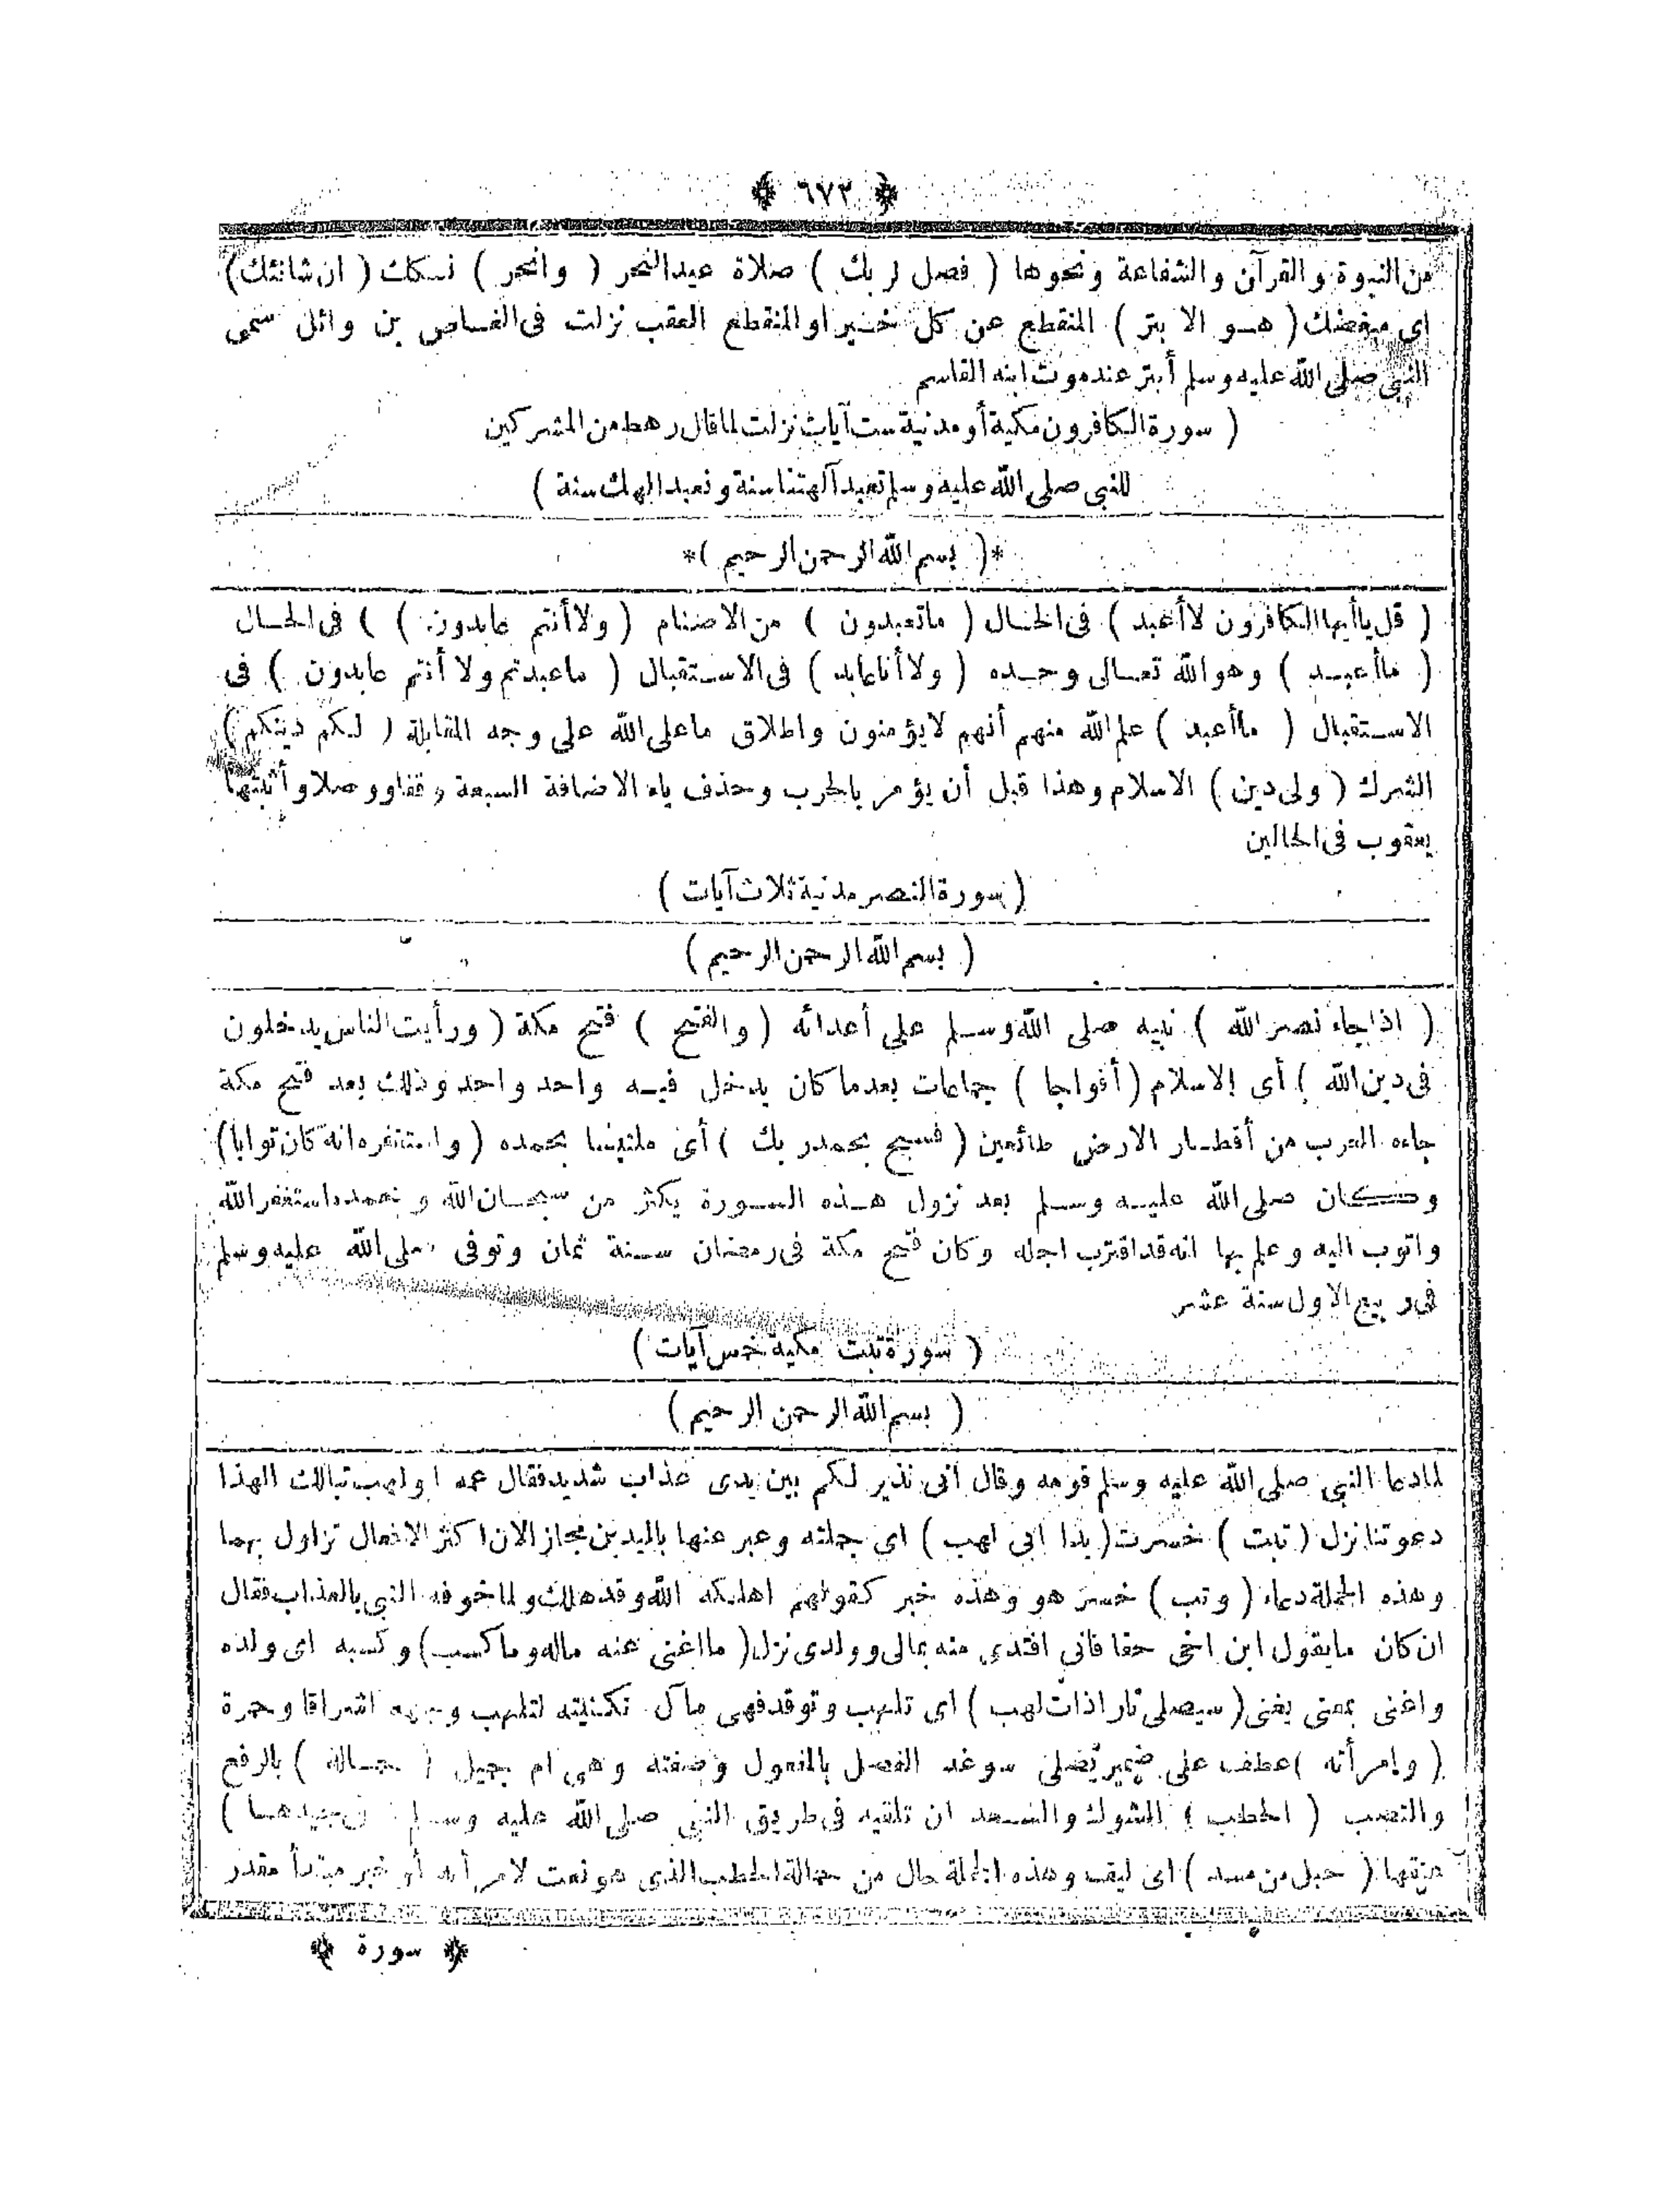 ﴿ ٦٧٣ ﴾
من النبوة والقرآن والشفاعة ونحوها ( فصل لربك ) صلاة عيد النحر ( وانحر ) نسكك ( ان شانئك )
اى مبغضك ( هو الابتر ) المنقطع عن كل خير او المنقطع العقب نزلت فى العاص بن وائل سمى
النبى صلى الله عليه وسلم أبتر عند موت ابنه القاسم
( سورة الكافرون مكية أو مدنية ست آيات نزلت لما قال رهط من المشركين
للنبى صلى الله عليه وسلم تعبد آلهتنا سنة ونعبد الهك سنة )
*( بسم الله الرحمن الرحيم )*
( قل ياأيها الكافرون لا أعبد ) فى الحال ( ما تعبدون ) من الاصنام ( ولا أنتم عابدون ) ) فى الحال
( ما أعبد ) وهو الله تعالى وحده ( ولا أنا عابد ) فى الاستقبال ( ما عبدتم ولا أنتم عابدون ) فى
الاستقبال ( ما أعبد ) علم الله منهم أنهم لا يؤمنون واطلاق ما على الله على وجه المقابلة ( لكم دينكم )
الشرك ( ولى دين ) الاسلام وهذا قبل أن يؤمر بالحرب وحذف ياء الاضافة السبعة وقفا ووصلا وأثبتها
يعقوب فى الحالين
( سورة النصر مدنية ثلاث آيات )
( بسم الله الرحمن الرحيم )
( اذا جاء نصر الله ) نبيه صلى الله وسلم على أعدائه ( والفتح ) فتح مكة ( ورأيت الناس يدخلون
فى دين الله ) أى الاسلام ( أفواجا ) جماعات بعد ما كان يدخل فيه واحد واحد وذلك بعد فتح مكة
جاءه العرب من أقطار الارض طائعين ( فسبح بحمد ربك ) أى ملتبسا بحمده ( واستغفره انه كان توابا )
وكان صلى الله عليه وسلم بعد نزول هذه السورة يكثر من سبحان الله وبحمده استغفر الله
واتوب اليه وعلم بها انه قد اقترب اجله وكان فتح مكة فى رمضان سنة ثمان وتوفى صلى الله عليه وسلم
فى ربيع الاول سنة عشر
( سورة تبت مكية خمس آيات )
( بسم الله الرحمن الرحيم )
لما دعا النبى صلى الله عليه وسلم قومه وقال انى نذير لكم بين يدى عذاب شديد فقال عمه ابو لهب تبا لك الهذا
دعوتنا نزل ( تبت ) خسرت ( يدا ابى لهب ) اى جملته وعبر عنها باليدين مجازا لان اكثر الافعال تزاول بهما
وهذه الجملة دعاء ( وتب ) خسر هو وهذه خبر كقولهم اهلكه الله وقد هلك ولما خوفه النبى بالعذاب فقال
ان كان ما يقول ابن اخى حقا فانى افتدى منه بمالى وولدى نزل ( ما اغنى عنه ماله وما كسب ) وكسبه اى ولده
واغنى بمعنى يغنى ( سيصلى نارا ذات لهب ) اى تلهب وتوقد فهى مآل تكنيته لتلهب وجهه اشراقا وحمرة
( وامرأته ) عطف على ضمير يصلى سوغه الفصل بالمفعول وصفته وهى ام جميل ( حمالة ) بالرفع
والنصب ( الحطب ) الشوك والسعد ان تلقيه فى طريق النبى صلى الله عليه وسلم ( فى جيدها )
عنقها ( حبل من مسد ) اى ليف وهذه الجملة حال من حمالة الحطب الذى هو نعت لامرأته أو خبر مبتدأ مقدر
﴿ سورة ﴾